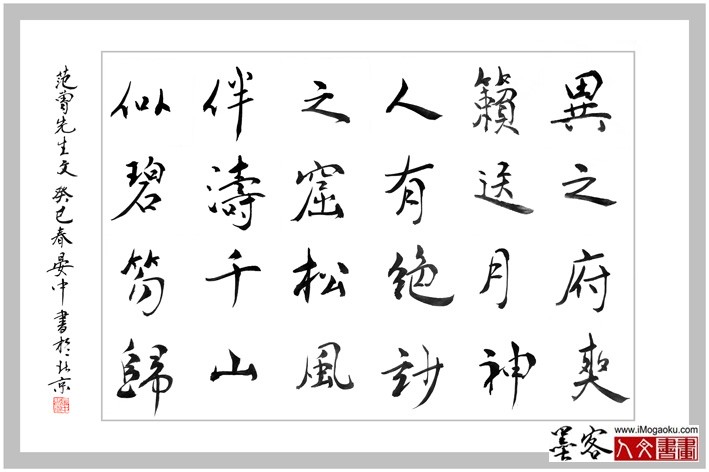 異之府爽
籟送月神
人有絕妙
之窟松風
伴濤千山
似碧笏歸
范曾先生文 癸巳春晏中書於北京
墨客
www.iMogaoku.com
人文書畫